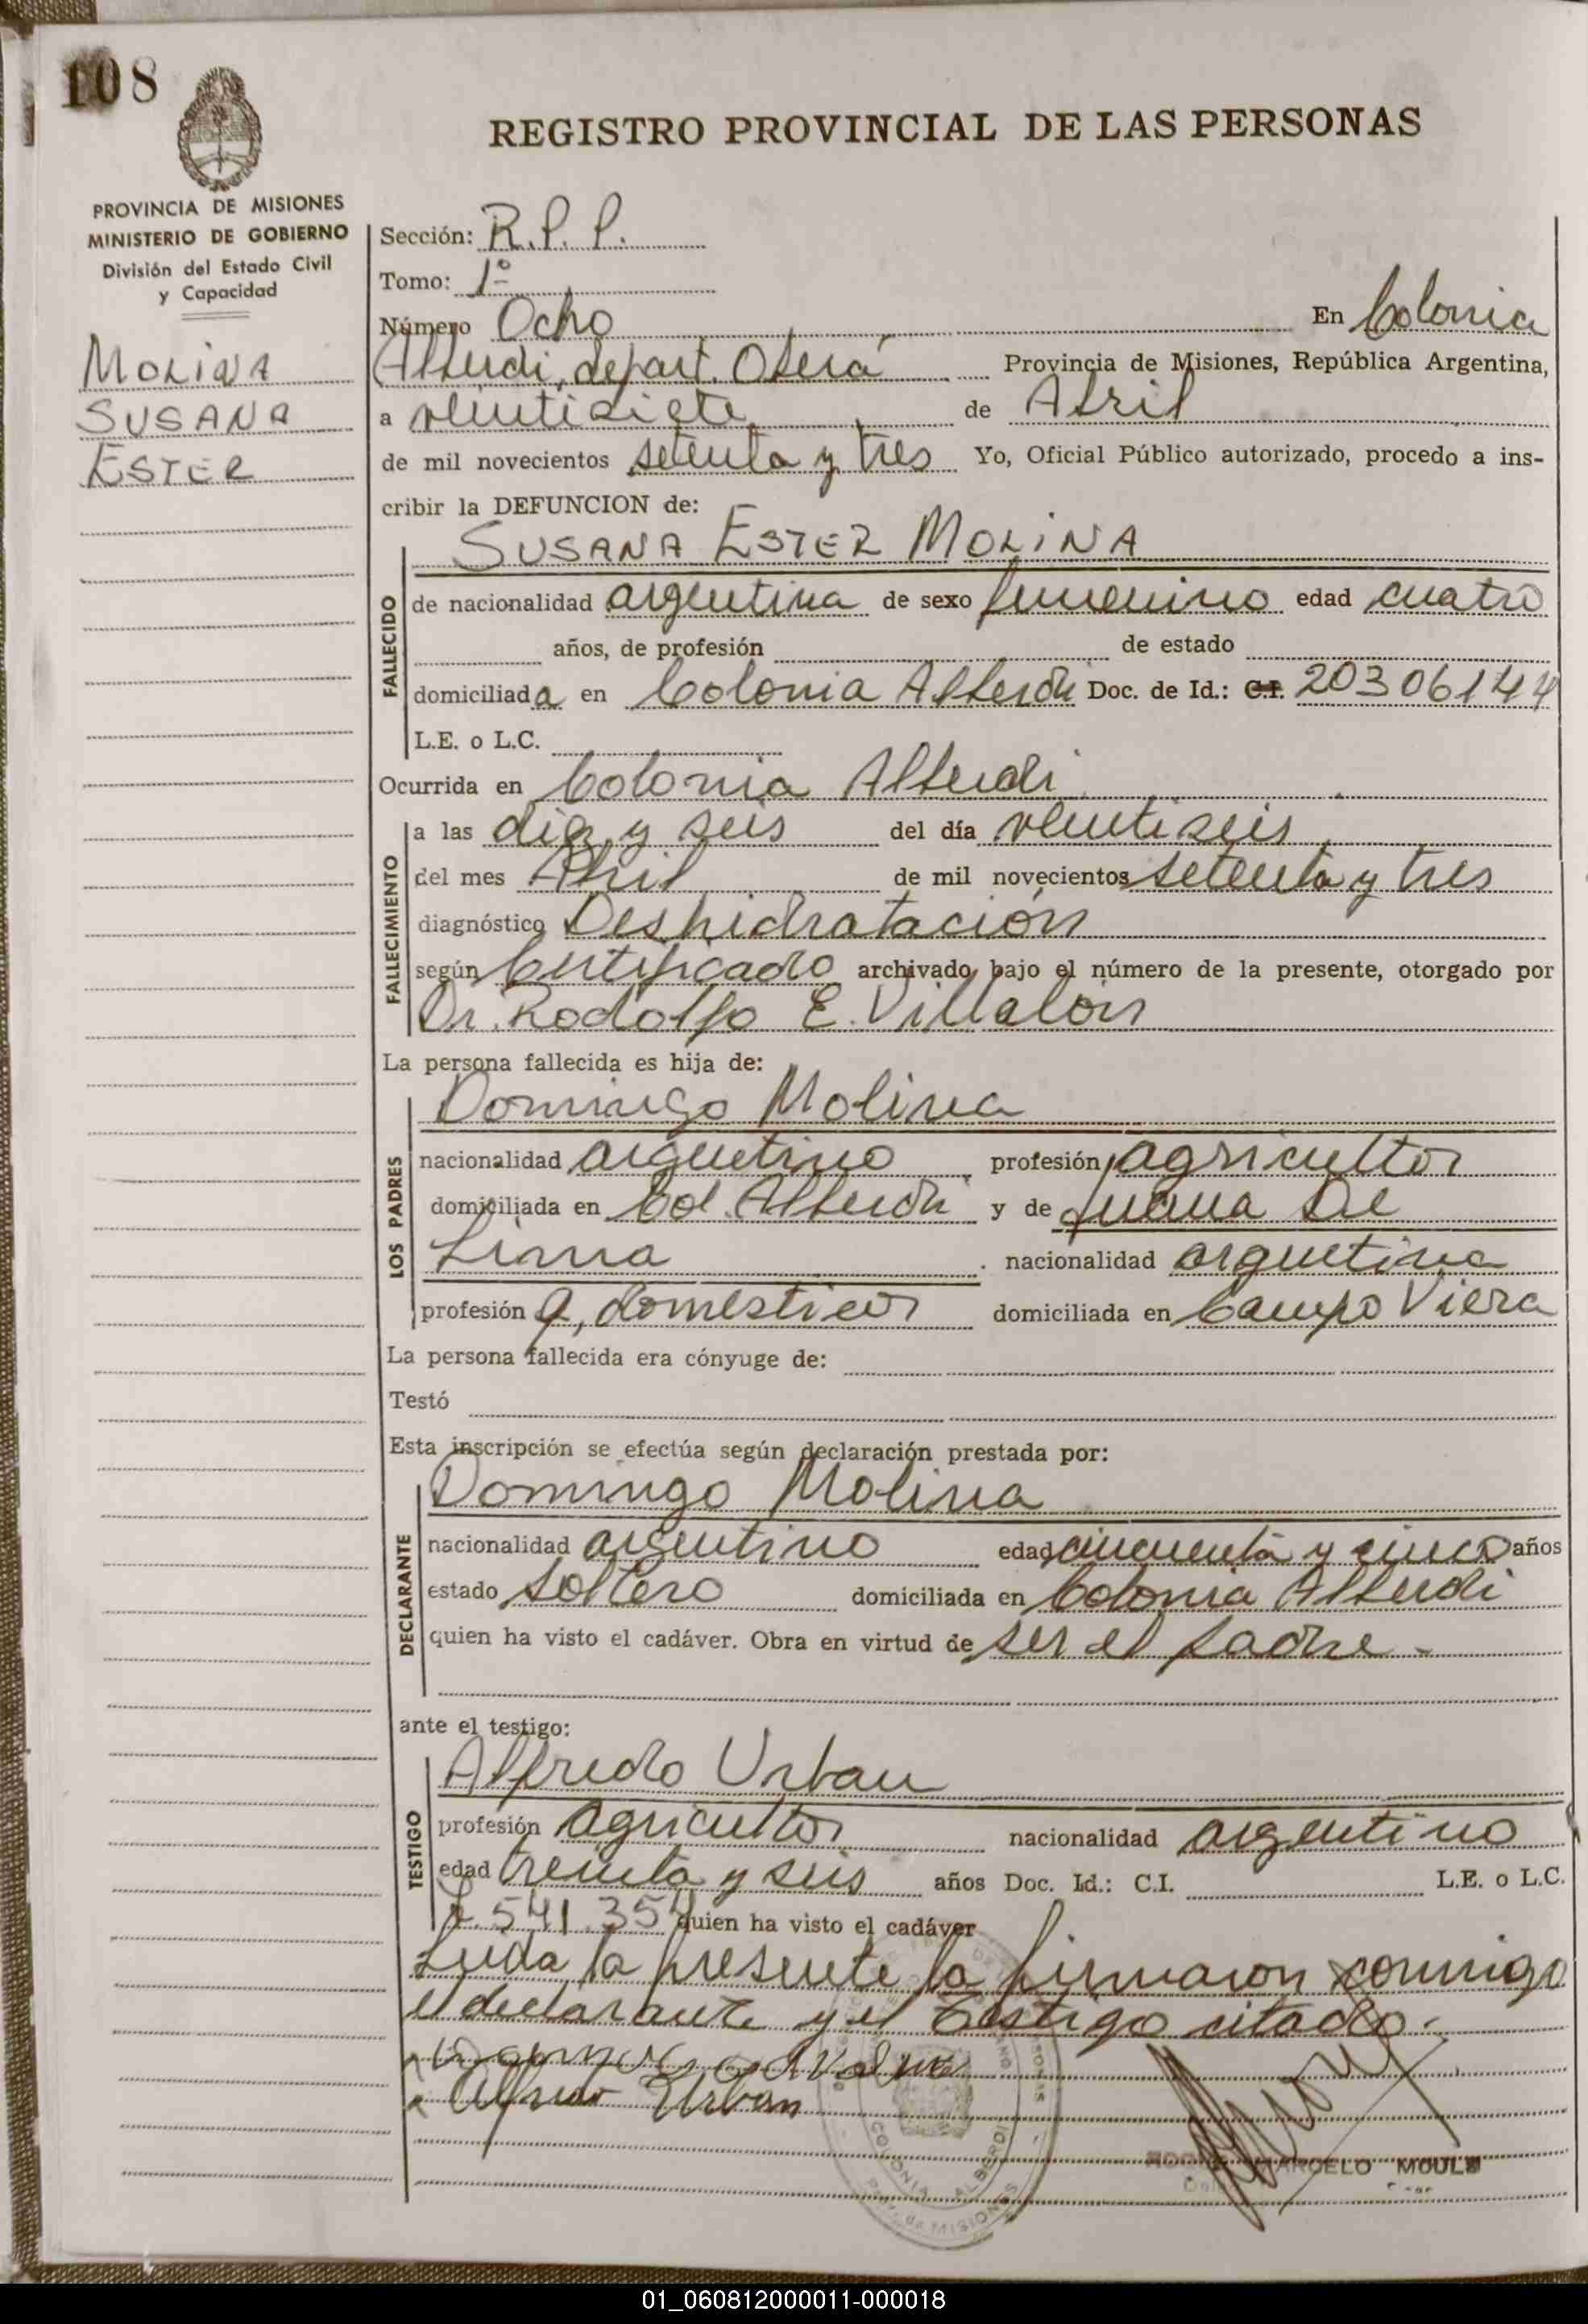 108
REGISTRO PROVINCIAL DE LAS PERSONAS
PROVINCIA DE MISIONES
MINISTERIO DE GOBIERNO
División del Estado Civil
y Capacidad
MOLINA
SUSANA
ESTER
Sección: R.P.P.
Tomo: 1º
Número Ocho En Colonia
Alberdi, depart. Oberá Provincia de Misiones, República Argentina,
a veintisiete de Abril
de mil novecientos setenta y tres Yo, Oficial Público autorizado, procedo a ins-
cribir la DEFUNCION de:
SUSANA ESTER MOLINA
FALLECIDO
de nacionalidad argentina de sexo femenino edad cuatro
años, de profesión de estado
domiciliada en Colonia Alberdi Doc. de Id.: C.I. 20306144
L.E. o L.C.
Ocurrida en Colonia Alberdi
FALLECIMIENTO
a las diez y seis del día veintiseis
del mes Abril de mil novecientos setenta y tres
diagnóstico Deshidratación
según Certificado archivado bajo el número de la presente, otorgado por
Dr. Rodolfo E. Villalón
La persona fallecida es hija de:
LOS PADRES
Domingo Molina
nacionalidad argentino profesión agricultor
domiciliada en Col. Alberdi y de Juana De
Lima nacionalidad argentina
profesión q. domésticos domiciliada en Campo Viera
La persona fallecida era cónyuge de:
Testó
Esta inscripción se efectúa según declaración prestada por:
DECLARANTE
Domingo Molina
nacionalidad argentino edad cincuenta y cinco años
estado soltero domiciliada en Colonia Alberdi
quien ha visto el cadáver. Obra en virtud de ser el padre.-
ante el testigo:
TESTIGO
Alfredo Urban
profesión agricultor nacionalidad argentino
edad treinta y seis años Doc. Id.: C.I. L.E. o L.C.
541.354 quien ha visto el cadáver
Leída la presente la firmaron conmigo
el declarante y el Testigo citado.-
Alfredo Urban
COLONIA ALBERDI
MISIONES
MARCELO MOULE
01_060812000011-000018